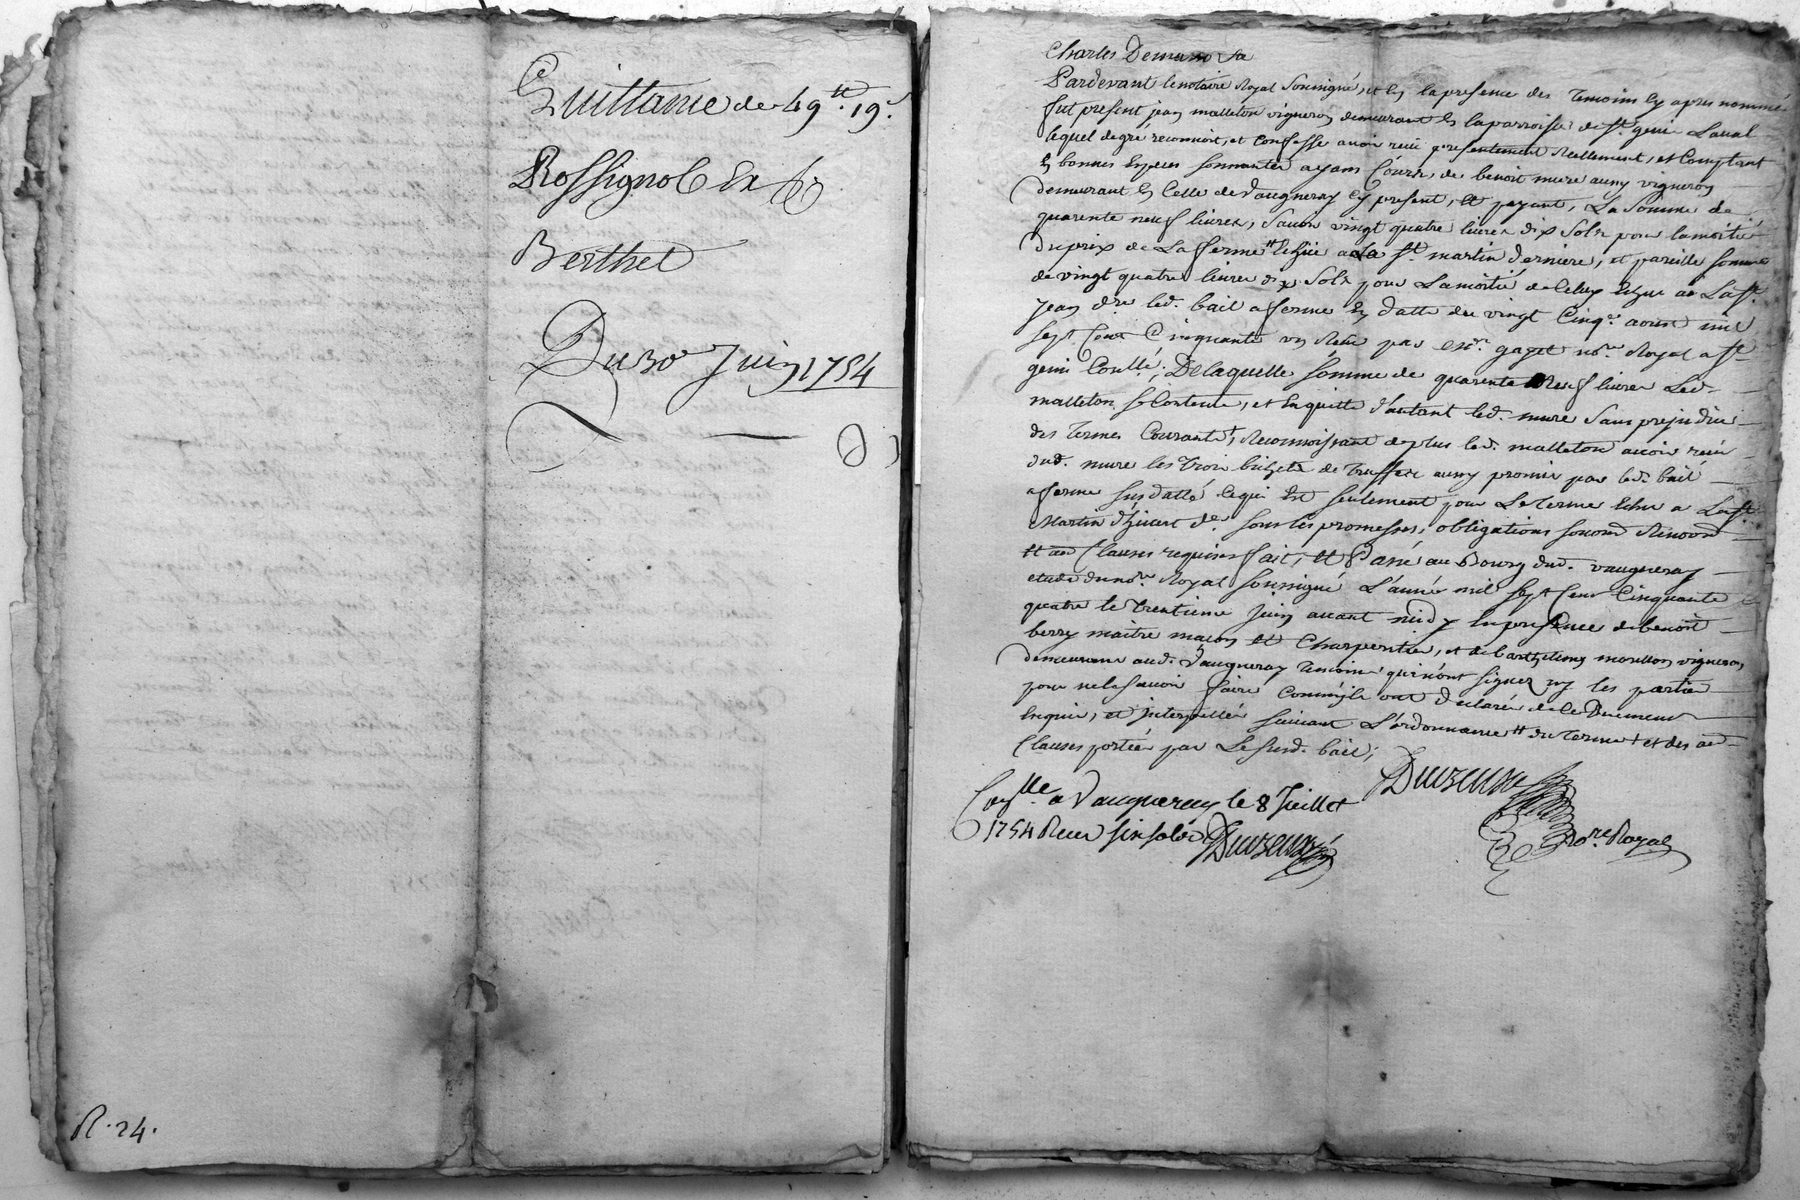 Quittance de 49tt. 19s
Rossignol Ex
Berthet
Du 30 Juin 1754
R. 24.
Charles
Pardevant le notaire Royal Soussigné, et En la presence des Temoins Cy apres nommés
fut present jean malleton vigneron demeurant En la parroisse de St. genis Laval
lequel de gré reconnoit, et Confesse avoir recu presentement Reellement, et Comptant
En bonnes Especes sonnantes ayans Cours de benoit mure aussy vigneron
demeurant En Celle de Vaugneray Cy present, Et payant, La Somme de
quarente neuf livres, Savoir vingt quatre livres dix Sols pour la moitié
du prix de La ferme Echue a La St. martin derniere, et pareille somme
de vingt quatre livres dix Sols pour La moitié de Celuy Echue a La St.
Jean dre. led. bail a ferme En datte du vingt Cinq aoust mil
sept Cent Cinquante un Receu par Me. gayet nore. Royal a St.
genis ; De laquelle Somme de quarente Neuf livres Led.
malleton se Contente, et En quitte d'autant led. mure Sans prejudice
des Termes Courants, Reconnoissant de plus led. malleton avoir recu
dud. mure les trois bichets de truffes aussy promis par led. bail
a ferme Susdatté Ce qui Est seulement pour Le terme Echu a La St.
Martin d'hivert de. Sous les promesses, obligations
Et au Clauses requises fait, Et Passé au Bourg dud. Vaugneray
etude du nore. Royal Soussigné L'année mil Sept Cent Cinquante
quatre le trentieme Juin avant midy En presence de benoit
berry maitre maçon Et Charpentier, et de barthelemy vigneron
demeurans aud. Vaugneray Temoins qui n'ont signez ny les parties
pour ne le Scavoir faire Comm'ils ont declarés de Ce Duement
Enquis, et Interpellés suivant L'ordonnance tt du terme + et des au
Clauses portées par Le Susd. bail;
Conlle. a Vaugneray le 8 Juillet
1754 Receu six sols
Nore. Royal